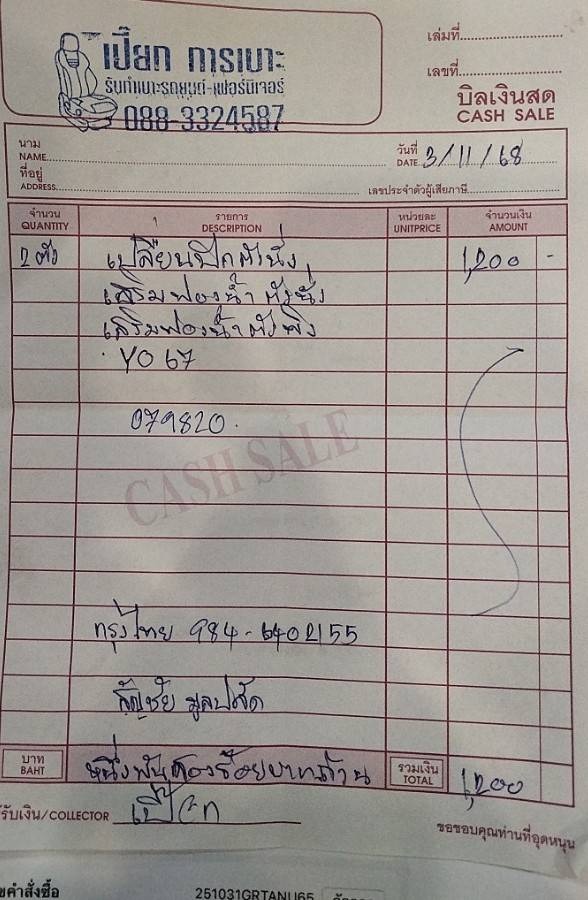 เปี๊ยก การเบาะ
รับทำเบาะรถยนต์-เฟอร์นิเจอร์
088-3324587
เล่มที่
เลขที่
บิลเงินสด
CASH SALE
นาม
NAME
วันที่
DATE 3/11/68
ที่อยู่
ADDRESS
เลขประจำตัวผู้เสียภาษี
จำนวน รายการ หน่วยละ จำนวนเงิน
QUANTITY DESCRIPTION UNITPRICE AMOUNT
2 ตัว เปลี่ยนปีกตัวนั่ง 1,200 -
เสริมฟองน้ำตัวนั่ง
เสริมฟองน้ำตัวพิง
YO 67
079820
CASH SALE
กรุงไทย 984-6402155
บาท หนึ่งพันสองร้อยบาทถ้วน รวมเงิน 1,200
BAHT TOTAL
รับเงิน/COLLECTOR เปี๊ยก
ขอขอบคุณท่านที่อุดหนุน
คำสั่งซื้อ 251031GRTANU65